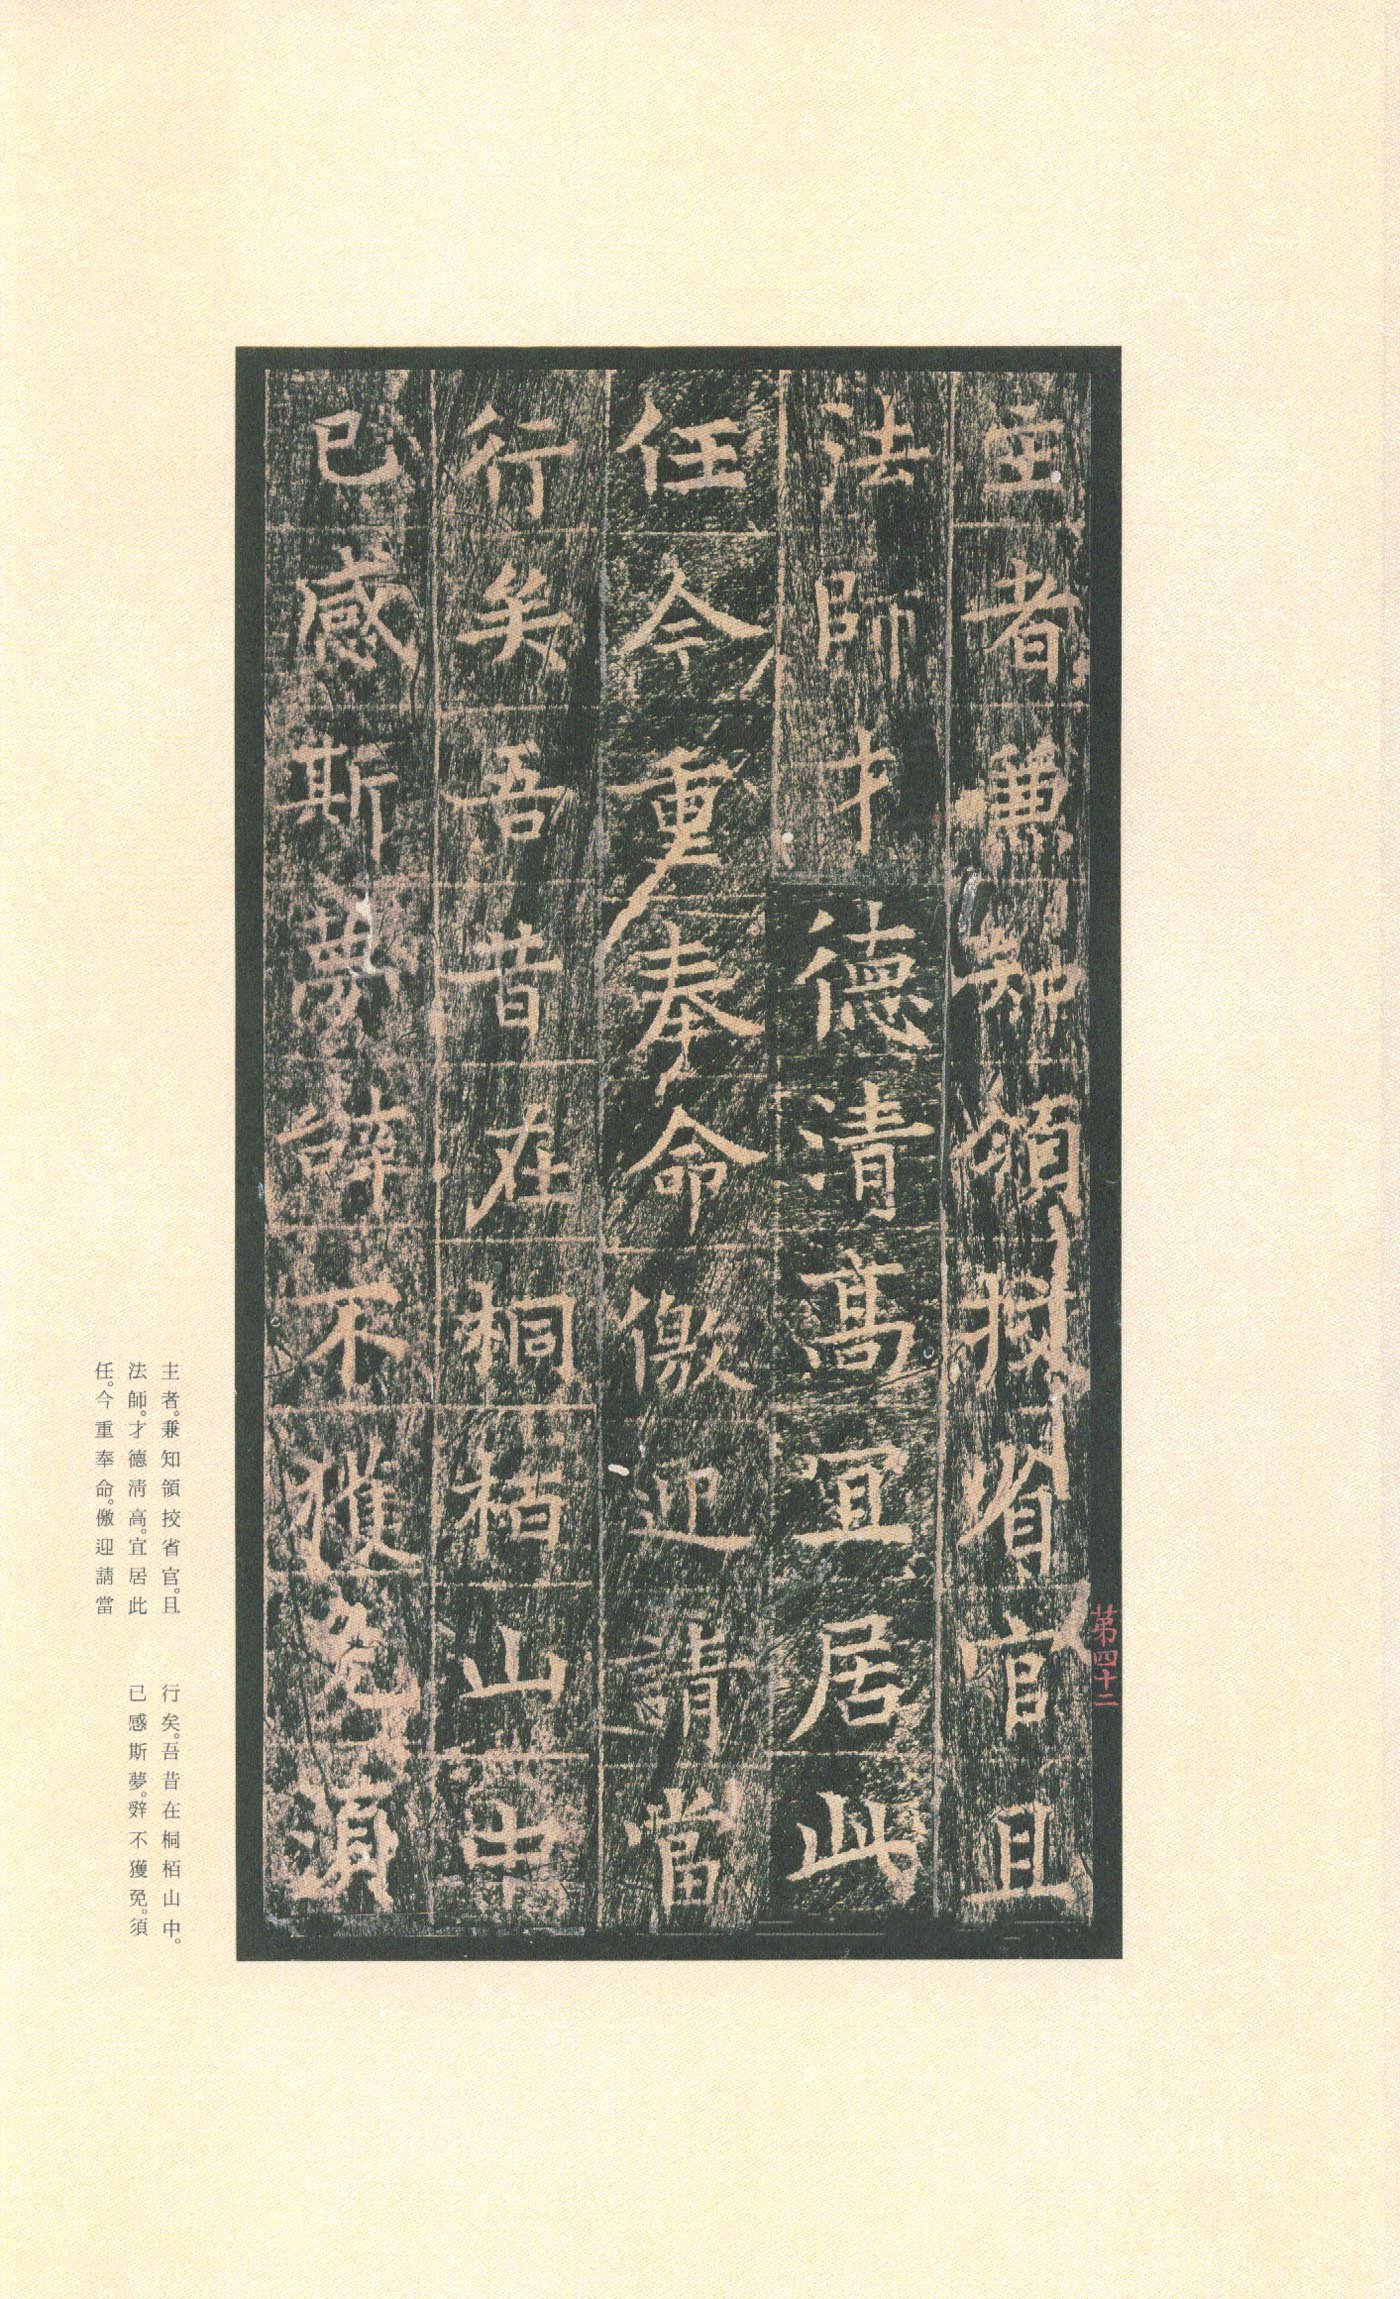 主者兼知領挍省官且
法師才德清高宜居此
任今重奉命儌迎請當
行矣吾昔在桐栢山中
已感斯夢辤不獲免須
第四十二
主者。兼知領挍省官。且
法師。才德淸高。宜居此
任。今重奉命。儌迎請當
行矣。吾昔在桐栢山中。
已感斯夢。辤不獲免。須